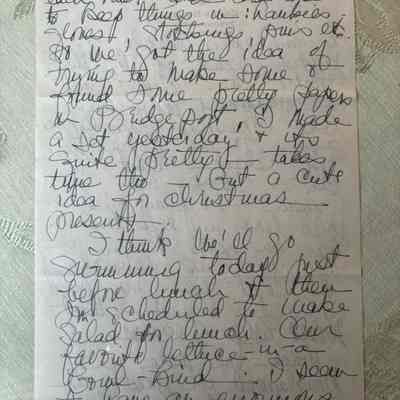 to keep things in: hankies
gloves, stockings, pins etc.
So we got the idea of
trying to make some &
found some pretty papers
in Bridgeport, I made
a set yesterday, & it's
quite pretty — takes
time tho — but a cute
idea for Christmas
presents.
I think we'll go
swimming today just
before lunch & then
I'm scheduled to make
salad for lunch. Our
favorite lettuce-in-a
Bowl-kind. I seem
to have an enormous